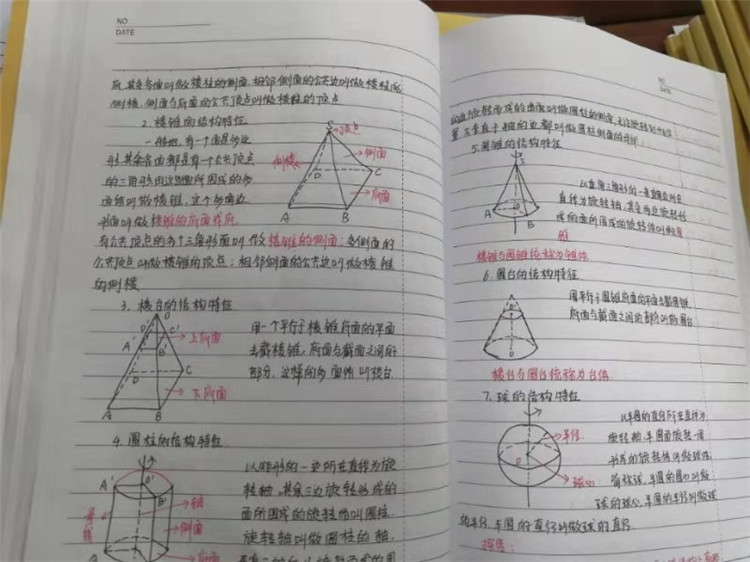 NO
DATE
所,其余各面叫做棱柱的侧面,相邻侧面的公共边叫做棱柱的
侧棱,侧面与底面的公共顶点叫做棱柱的顶点
2.棱锥的结构特征
一般地,有一个面是多边
形,其余各面都是有一个公共顶点
的三角形,由这些面所围成的多
面体叫做棱锥,这个多边
形面叫做棱锥的底面或底
有公共顶点的各个三角形面叫做棱锥的侧面;各侧面的
公共顶点叫做棱锥的顶点;相邻侧面的公共边叫做棱锥
的侧棱
S
顶点
侧面
侧棱
D
C
底面
A
B
3.棱台的结构特征
用一个平行于棱锥底面的平面
去截棱锥,底面与截面之间的
部分,这样的多面体叫棱台
D'
C'
A'
B'
上底面
D
C
下底面
A
B
4.圆柱的结构特征
以矩形的一边所在直线为旋
转轴,其余三边旋转形成的
面所围成的旋转体叫圆柱.
旋转轴叫做圆柱的轴,
A'
O'
B'
轴
侧面
A
底面
DATE
5.圆锥的结构特征
以直角三角形的一条直角边所在
直线为旋转轴,其余两边旋转形
成的面所围成的旋转体叫做圆
锥
S
A
B
棱锥与圆锥统称为锥体
6.圆台的结构特征
用平行于圆锥底面的平面去截圆锥,
底面与截面之间的部分叫做圆台
O
棱台与圆台统称为台体
7.球的结构特征
以半圆的直径所在直线为
旋转轴,半圆面旋转一周
形成的旋转体叫做球体,
简称球,半圆的圆心叫做
球的球心,半圆的半径叫做球
的半径,半圆的直径叫做球的直径.
半径
O
球心